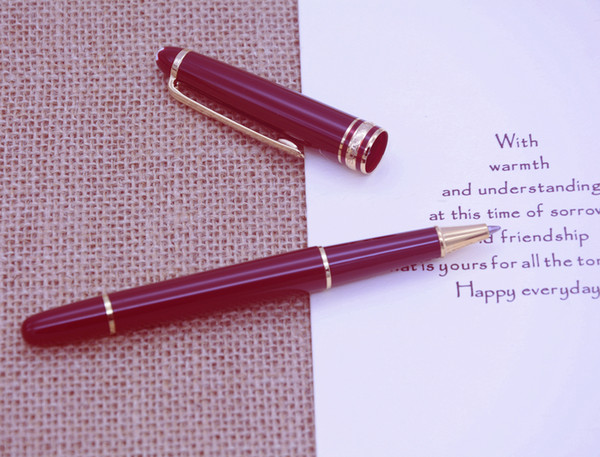 With
warmth
and understanding
at this time of sorrow
friendship
is yours for all the
Happy everyday